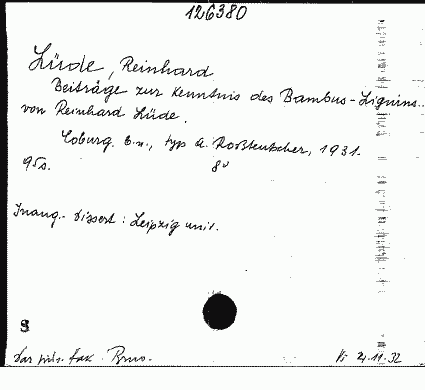 126380
Lüde, Reinhard
Beiträge zur Kenntnis des Bambus-Lignins..
von Reinhard Lüde.
Coburg. s.n., typ A. Roßteutscher, 1931.
95s. 8º
Inaug.- Dissert: Leipzig univ.
S
Dar Fak. Brno.
21.11.32